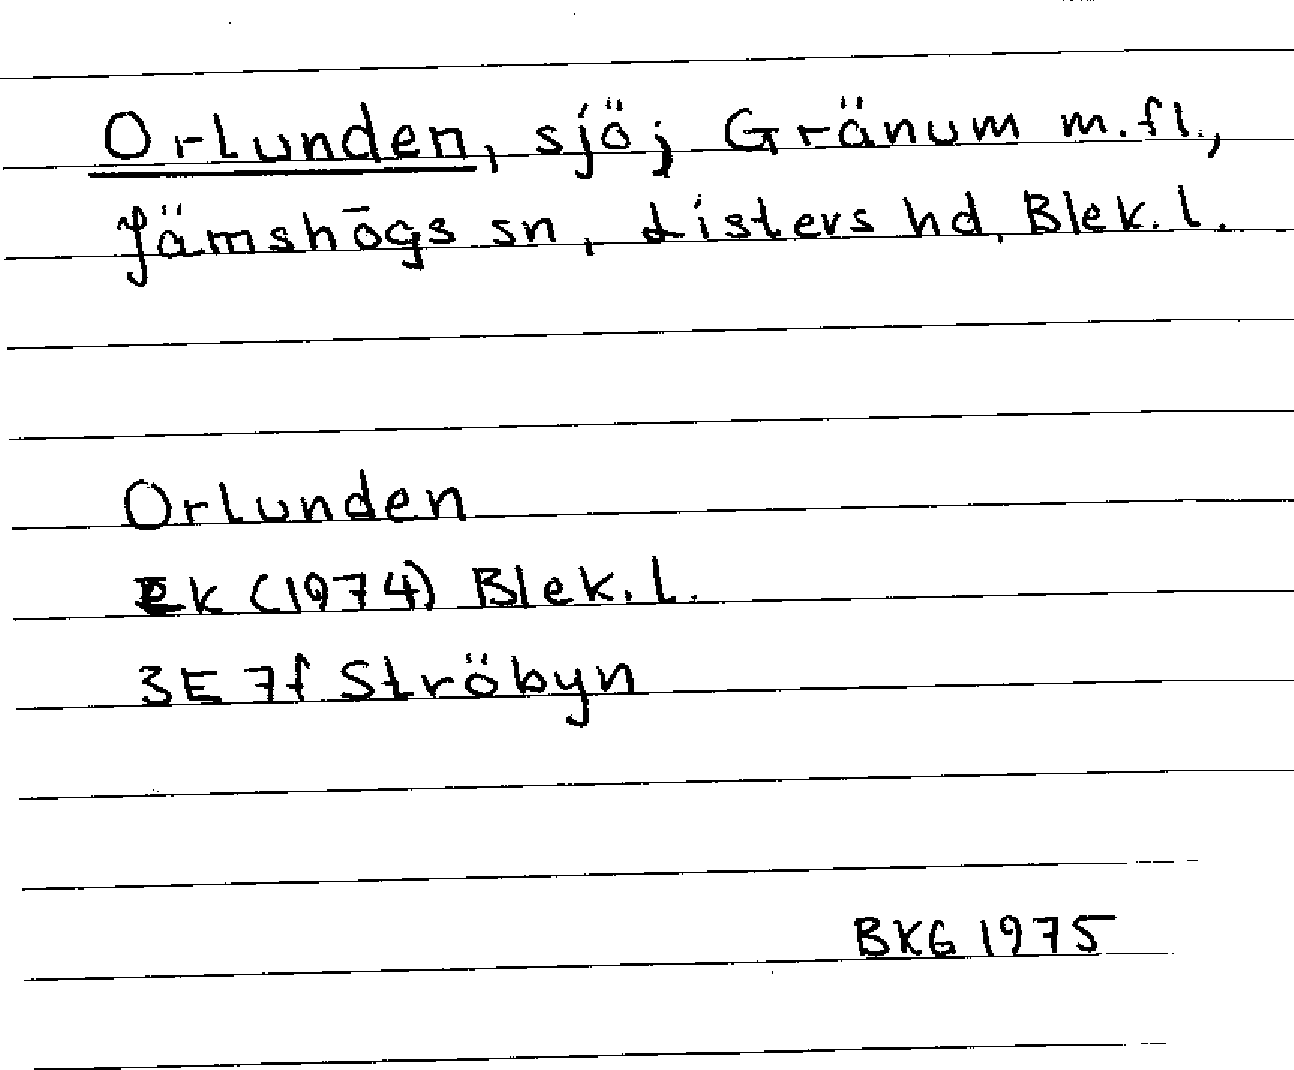 Orlunden, sjö; Gränum m.fl.,
Jämshögs sn, Listers hd, Blek. l.
Orlunden
Ek (1974) Blek. l.
3E 7f Ströbyn
BKG 1975